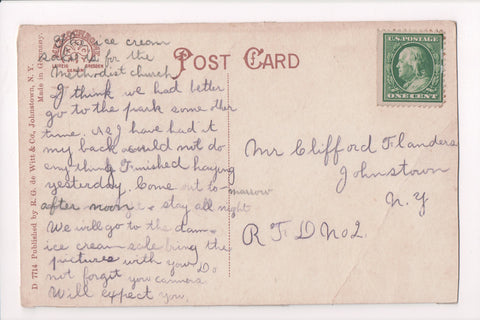 ice cream
for the
Methodist church
I think we had better
go to the park some other
time. as I have had it
my back would not do
any thing Finished haying
yesterday. Come out to-morrow
after noon stay all night
We will go to the
ice cream sale bring the
pictures with you Do
not forget you
Will expect you.
POST CARD
U.S. POSTAGE
ONE CENT
Mr Clifford Flanders
Johnstown
N. Y
R. F D No 2.
D 7714 Published by R. G. de Witt & Co., Johnstown, N. Y.
Made in Germany.
LEIPZIG
DRESDEN